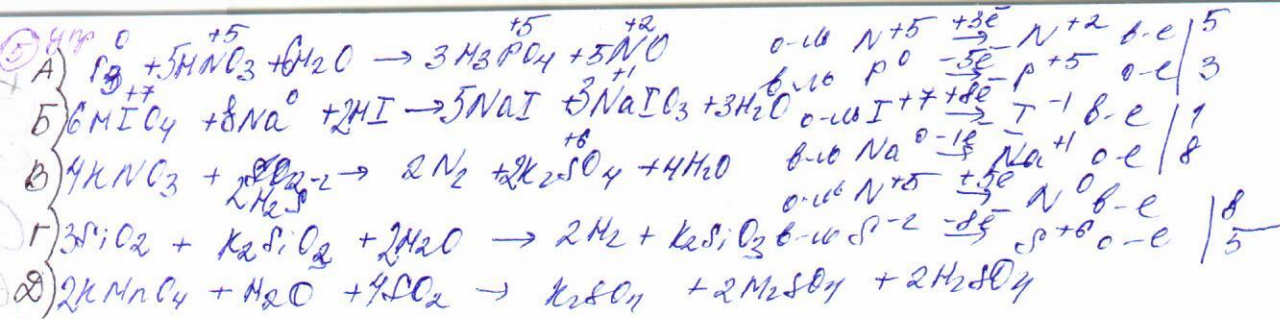 5 упр.
А) P + 5HNO3 + 6H2O → 3H3PO4 + 5NO о-ль N+5 +3e→ N+2 в-е | 5
в-ль P0 -5e→ P+5 о-е | 3
Б) 6HIO4 + 8Na + 2HI → 5NaI + 3NaIO3 + 3H2O о-ль I+7 +8e→ I-1 в-е | 1
в-ль Na0 -1e→ Na+1 о-е | 8
В) 4KNO3 + 2H2S → 2N2 + 2K2SO4 + 4H2O
о-ль N+5 +5e→ N0 в-е | 8
в-ль S-2 -8e→ S+6 о-е | 5
Г) 3SiO2 + K2SiO2 + 2H2O → 2H2 + K2SiO3
Д) 2KMnO4 + H2O + 4SO2 → K2SO4 + 2M2SO4 + 2H2SO4